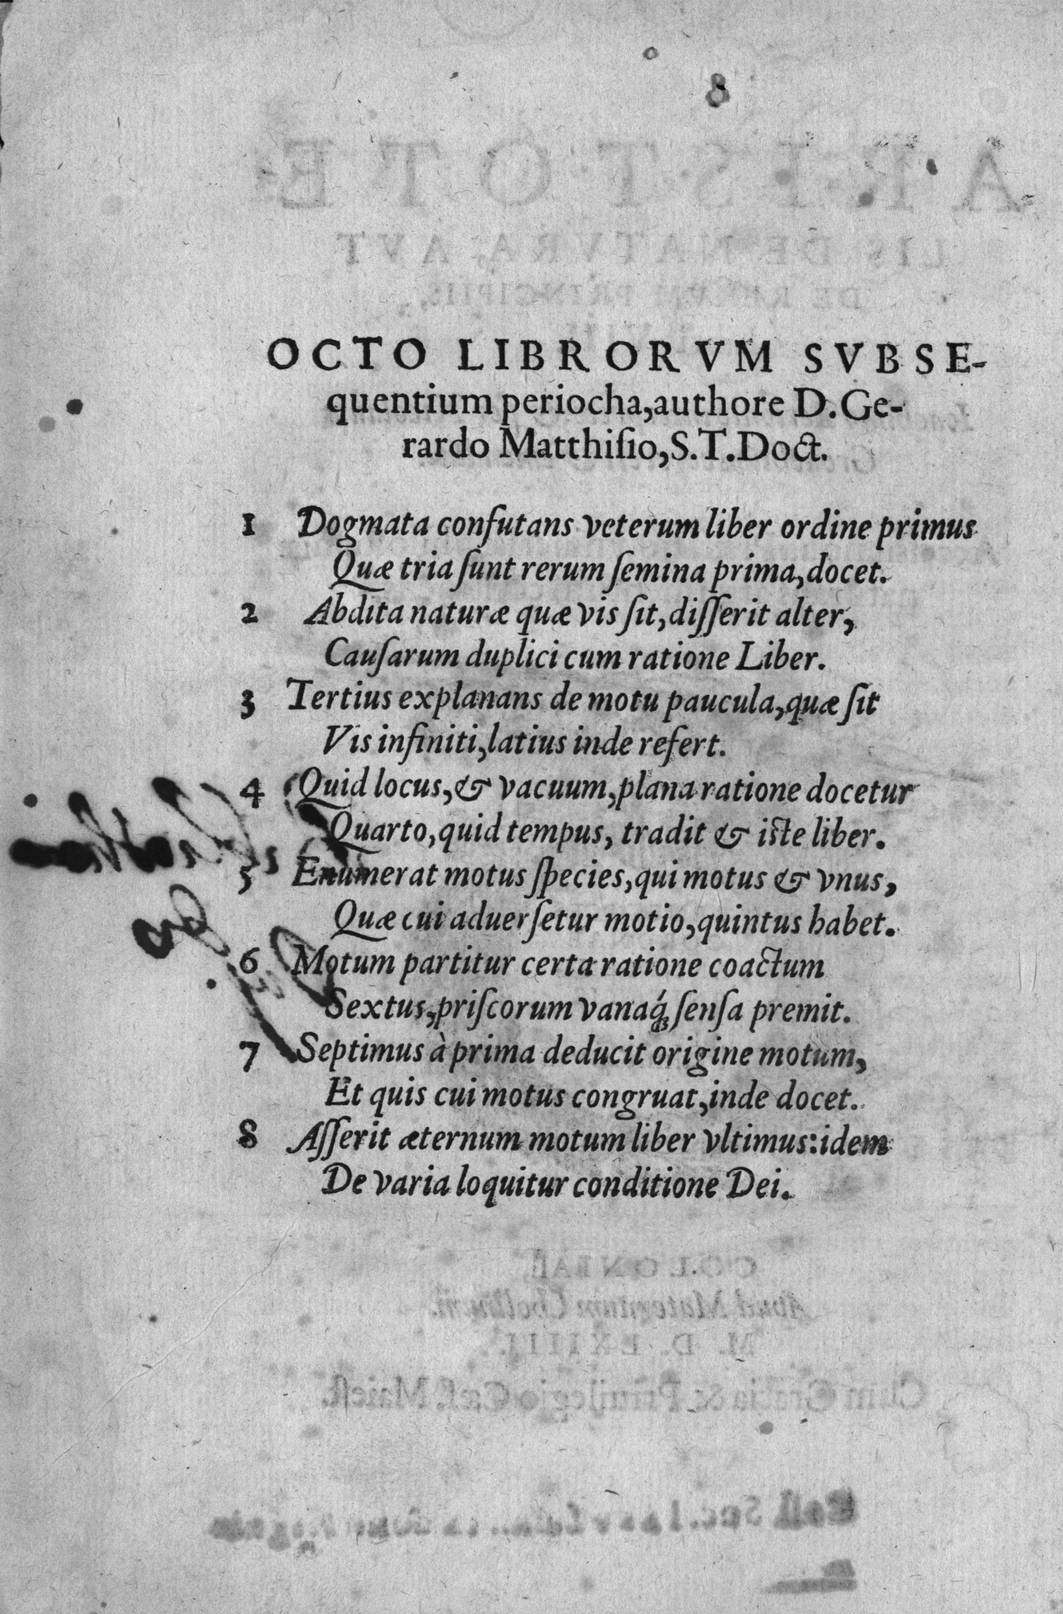 8
OCTO LIBRORVM SVBSE-
quentium periocha,authore D.Ge-
rardo Matthiſio,S.T.Doct.
1 Dogmata confutans veterum liber ordine primus
Quæ tria ſunt rerum ſemina prima,docet.
2 Abdita naturæ quæ vis ſit,diſſerit alter,
Cauſarum duplici cum ratione Liber.
3 Tertius explanans de motu paucula,quæ ſit
Vis infiniti,latius inde refert.
4 Quid locus,& vacuum,plana ratione docetur
Quarto,quid tempus, tradit & iſte liber.
5 Enumerat motus ſpecies,qui motus & vnus,
Quæ cui aduerſetur motio,quintus habet.
6 Motum partitur certa ratione coactum
Sextus,priſcorum vanaq́; ſenſa premit.
7 Septimus à prima deducit origine motum,
Et quis cui motus congruat,inde docet.
8 Aſſerit æternum motum liber vltimus:idem
De varia loquitur conditione Dei.